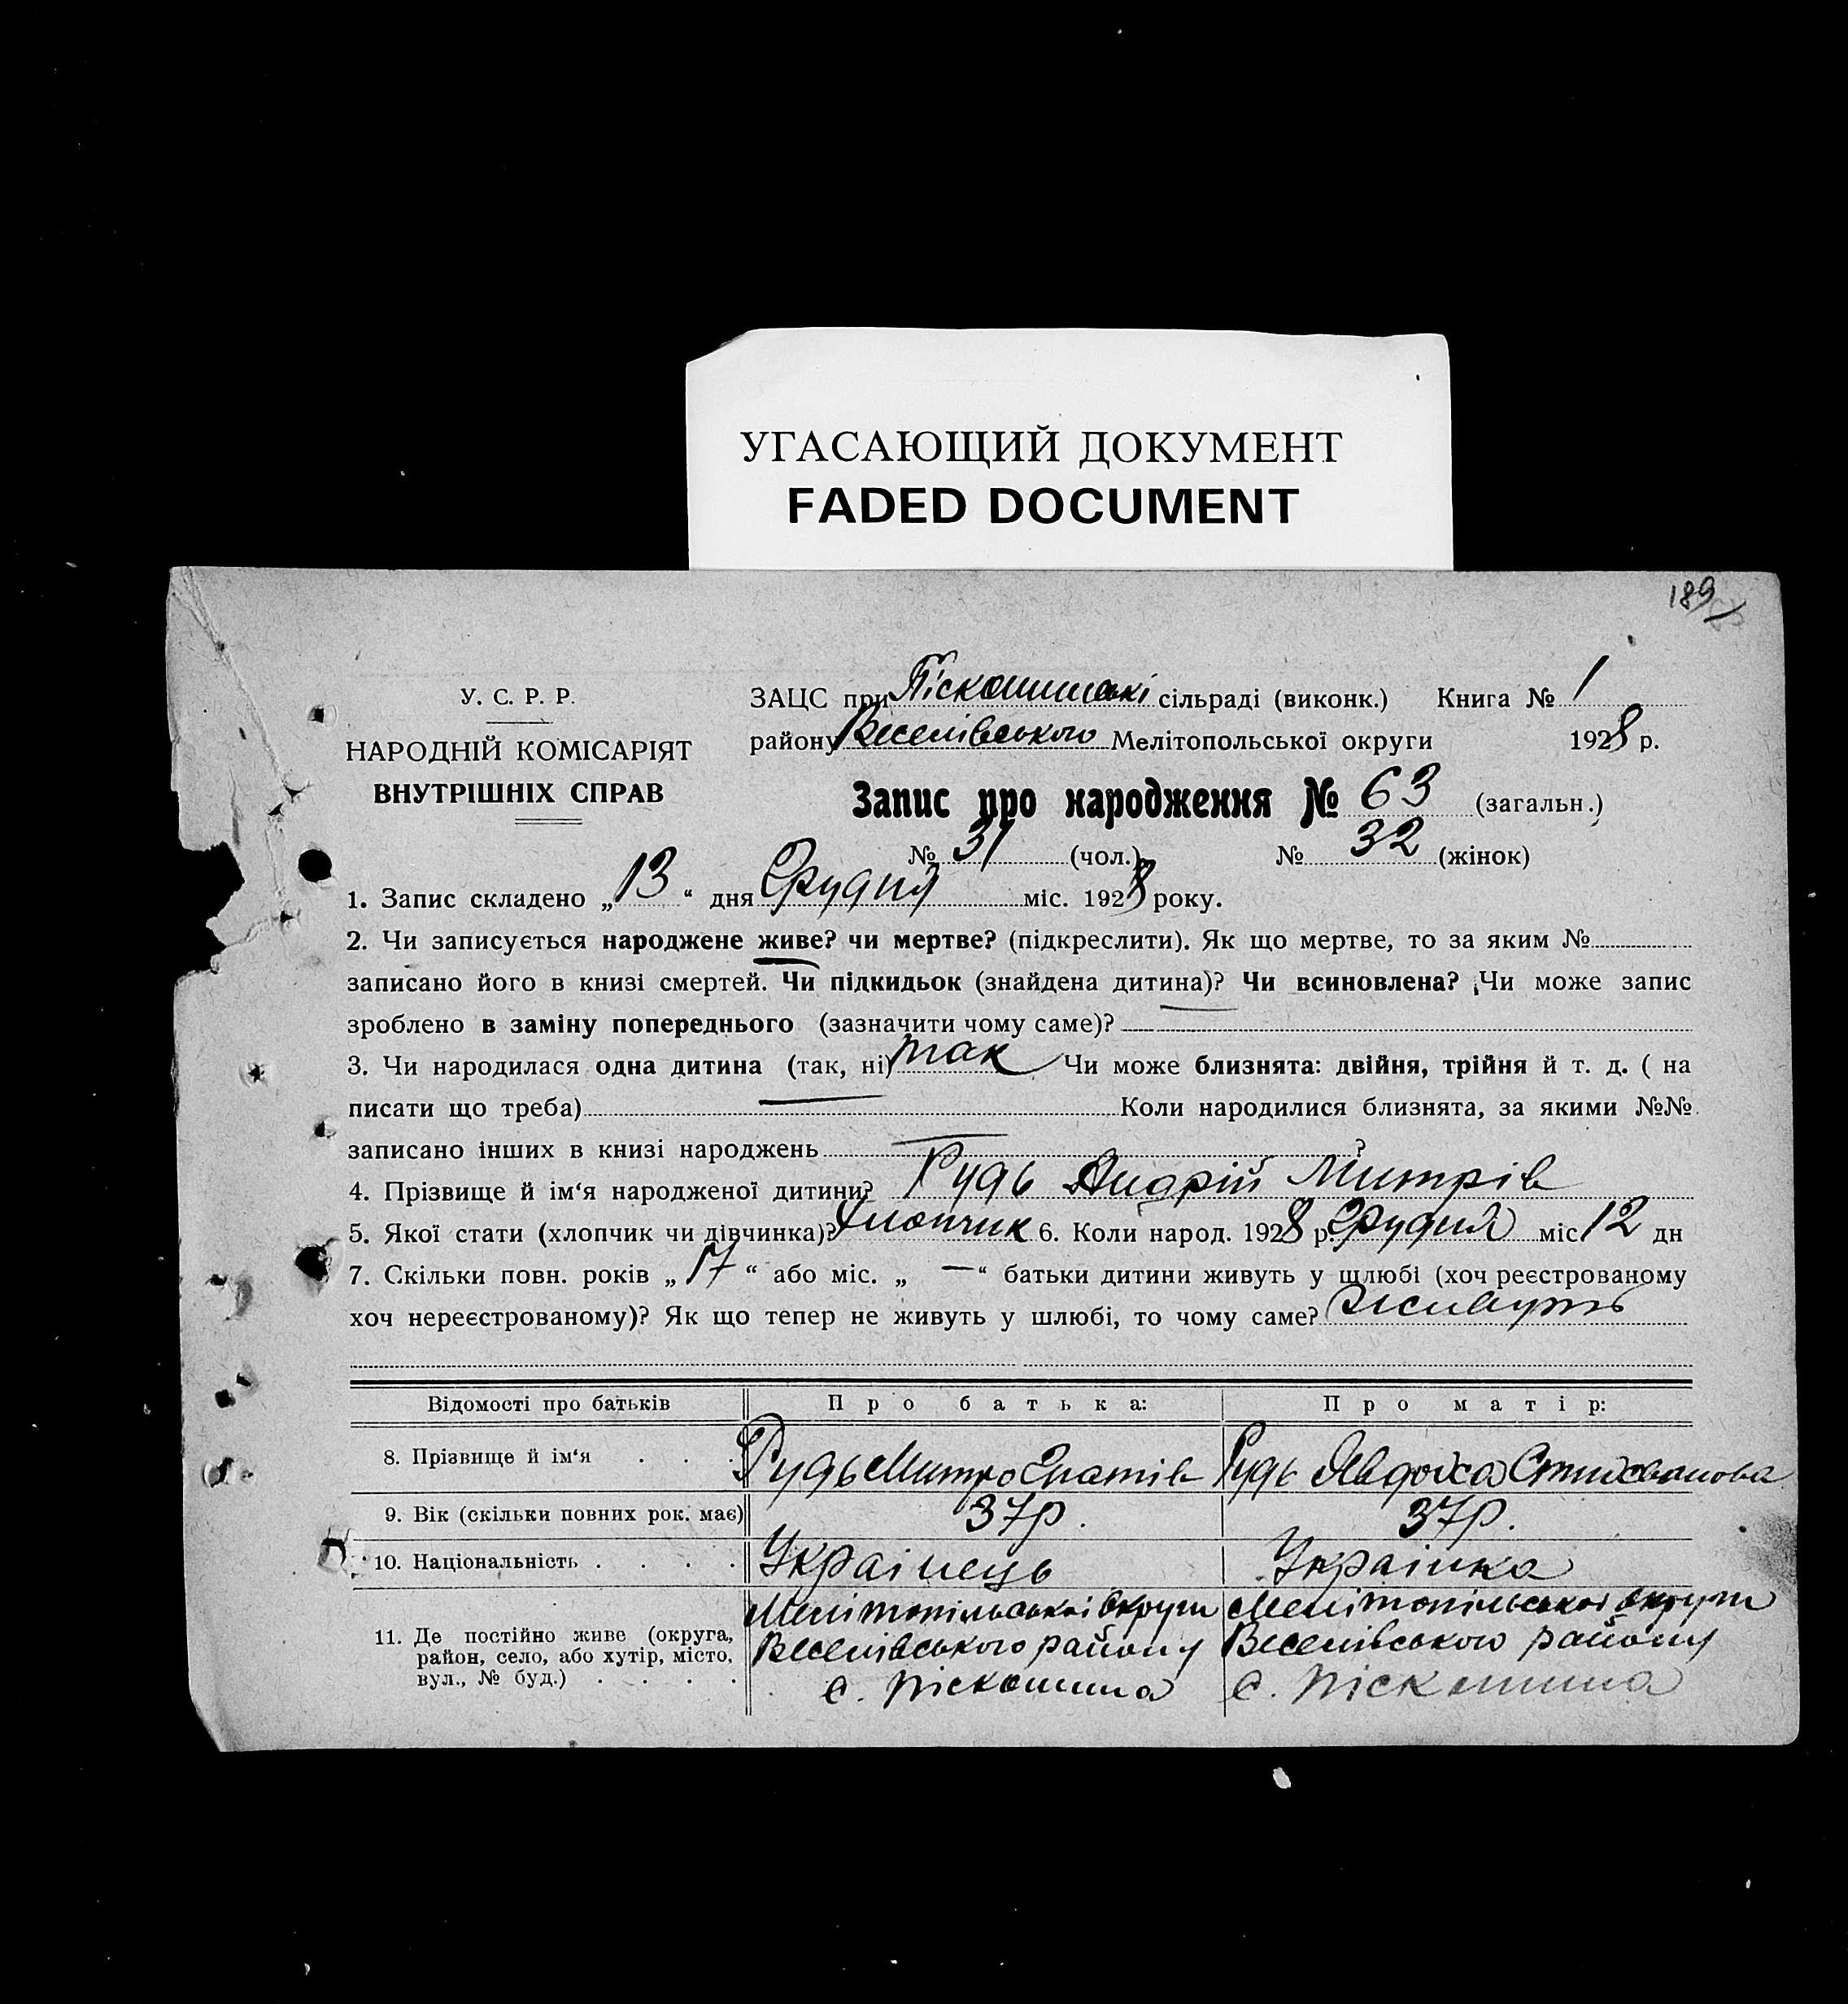 УГАСАЮЩИЙ ДОКУМЕНТ
FADED DOCUMENT
189
У. С. Р. Р.
НАРОДНІЙ КОМІСАРІЯТ
ВНУТРІШНІХ СПРАВ
ЗАЦС при Піскошинські сільраді (виконк.) Книга № 1
району Веселівського Мелітопольської округи 1928 р.
Запис про народження № 63 (загальн.)
№ 31 (чол.) № 32 (жінок)
1. Запис складено „ 13 “ дня Грудня міс. 1928 року.
2. Чи записується народжене живе? чи мертве? (підкреслити). Як що мертве, то за яким №
записано його в книзі смертей. Чи підкидьок (знайдена дитина)? Чи всиновлена? Чи може запис
зроблено в заміну попереднього (зазначити чому саме)? —
3. Чи народилася одна дитина (так, ні) так Чи може близнята: двійня, трійня й т. д. ( на
писати що треба) — Коли народилися близнята, за якими №№
записано інших в книзі народжень — ?
4. Прізвище й ім'я народженої дитини? Рудь Андрій Митрів
5. Якої стати (хлопчик чи дівчинка)? Хлопчик 6. Коли народ. 1928 р. Грудня міс 12 дн
7. Скільки повн. років „ 17 “ або міс. „ — “ батьки дитини живуть у шлюбі (хоч реєстрованому
хоч нереєстрованому)? Як що тепер не живуть у шлюбі, то чому саме? Живуть
Відомості про батьків Про батька: Про матір:
8. Прізвище й ім‘я . . . Рудь Митро Гнатів Рудь Явдоха
9. Вік (скільки повних рок. має) 37р. 37р.
10. Національність . . . . Украінець Украінка
11. Де постійно живе (округа, район, село, або хутір, місто, вул., № буд.) . . . .
Мелітопільськоі Округи Мелітопільськоі округи
Веселівського району Веселівського району
с. Піскошина с. Піскошина